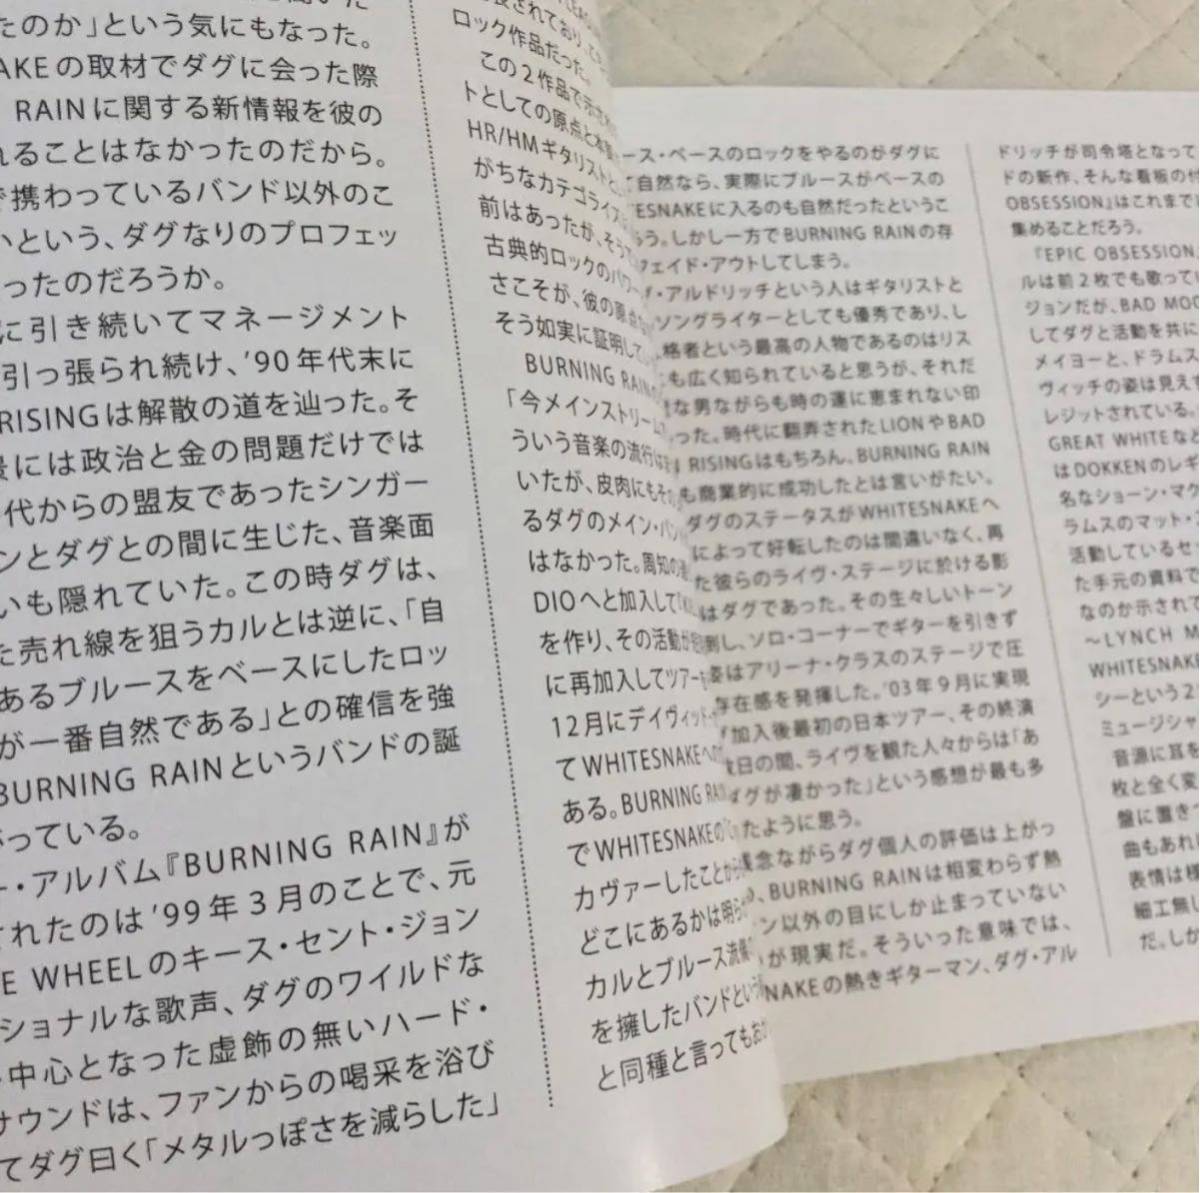 たのか」という気にもなった。
AKEの取材でダグに会った際
RAINに関する新情報を彼の
れることはなかったのだから。
で携わっているバンド以外のこ
いという、ダグなりのプロフェッ
ったのだろうか。
に引き続いてマネージメント
引っ張られ続け、'90年代末に
RISINGは解散の道を辿った。そ
景には政治と金の問題だけでは
代からの盟友であったシンガー
ンとダグとの間に生じた、音楽面
いも隠れていた。この時ダグは、
た売れ線を狙うカルとは逆に、「自
あるブルースをベースにしたロッ
が一番自然である」との確信を強
BURNING RAINというバンドの誕
がっている。
ー・アルバム『BURNING RAIN』が
されたのは'99年3月のことで、元
E WHEELのキース・セント・ジョン
ショナルな歌声、ダグのワイルドな
中心となった虚飾の無いハード・
サウンドは、ファンからの喝采を浴び
てダグ曰く「メタルっぽさを減らした」
ロック作品だった。
この2作品で
トとしての原点と
HR/HMギタリストと
がちなカテゴライズ
前はあったが、そう
古典的ロックのパワー
さこそが、彼の原点
そう如実に証明して
BURNING RAINの
「今メインストリーム
ういう音楽の流行は
いたが、皮肉にもその
るダグのメイン・バン
はなかった。周知の
DIOへと加入して
を作り、その活動が
に再加入してツアー
12月にデイヴィッド・
てWHITESNAKEへの
ある。BURNING RAIN
でWHITESNAKEの
カヴァーしたことから
どこにあるかは明ら
カルとブルース
を擁したバンドという
と同種と言ってもお
ース・ベースのロックをやるのがダグに
て自然なら、実際にブルースがベースの
TESNAKEに入るのも自然だったというこ
ろう。しかし一方でBURNING RAINの存
フェイド・アウトしてしまう。
グ・アルドリッチという人はギタリストと
ソングライターとしても優秀であり、し
格者という最高の人物であるのはリス
も広く知られていると思うが、それだ
な男ながらも時の運に恵まれない印
った。時代に翻弄されたLIONやBAD
RISINGはもちろん、BURNING RAIN
も商業的に成功したとは言いがたい。
ダグのステータスがWHITESNAKEへ
によって好転したのは間違いなく、再
た彼らのライヴ・ステージに於ける影
はダグであった。その生々しいトーン
刺し、ソロ・コーナーでギターを引きず
姿はアリーナ・クラスのステージで圧
存在感を発揮した。'03年9月に実現
加入後最初の日本ツアー、その終演
数日の間、ライヴを観た人々からは「あ
ダグが凄かった」という感想が最も多
たように思う。
残念ながらダグ個人の評価は上がっ
、BURNING RAINは相変わらず熱
ン以外の目にしか止まっていない
が現実だ。そういった意味では、
NAKEの熱きギターマン、ダグ・アル
ドリッチが司令塔となって
ドの新作、そんな看板の付
OBSESSION』はこれまで
集めることだろう。
『EPIC OBSESSION』
ルは前2枚でも歌って
ジョンだが、BAD MOO
してダグと活動を共に
メイヨーと、ドラムス
ヴィッチの姿は見えず
レジットされている。
GREAT WHITEなど
はDOKKENのレギ
名なショーン・マク
ラムスのマット・
活動しているセッ
た手元の資料で
なのか示されて
～LYNCH M
WHITESNAKE
シーという2
ミュージシャ
音源に耳を
枚と全く変
盤に置き
曲もあれ
表情は様
細工無し
だ。しか